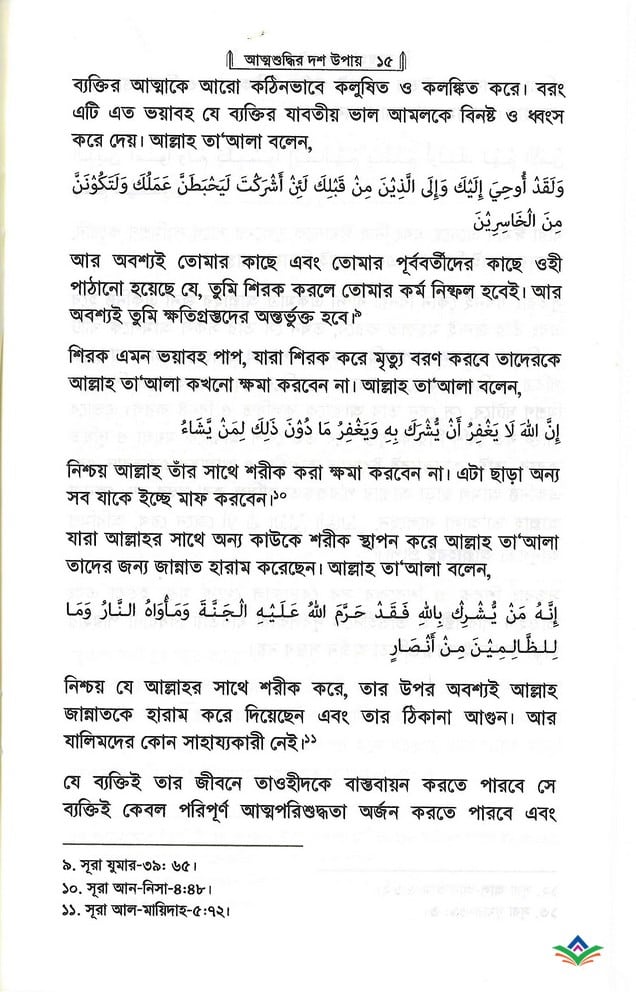 আত্মশুদ্ধির দশ উপায় ১৫
ব্যক্তির আত্মাকে আরো কঠিনভাবে কলুষিত ও কলঙ্কিত করে। বরং
এটি এত ভয়াবহ যে ব্যক্তির যাবতীয় ভাল আমলকে বিনষ্ট ও ধ্বংস
করে দেয়। আল্লাহ তা‘আলা বলেন,
وَلَقَدْ أُوحِيَ إِلَيْكَ وَإِلَى الَّذِيْنَ مِنْ قَبْلِكَ لَئِنْ أَشْرَكْتَ لَيَحْبَطَنَّ عَمَلُكَ وَلَتَكُوْنَنَّ
مِنَ الْخَاسِرِيْنَ
আর অবশ্যই তোমার কাছে এবং তোমার পূর্ববর্তীদের কাছে ওহী
পাঠানো হয়েছে যে, তুমি শিরক করলে তোমার কর্ম নিষ্ফল হবেই। আর
অবশ্যই তুমি ক্ষতিগ্রস্তদের অন্তর্ভুক্ত হবে।৯
শিরক এমন ভয়াবহ পাপ, যারা শিরক করে মৃত্যু বরণ করবে তাদেরকে
আল্লাহ তা‘আলা কখনো ক্ষমা করবেন না। আল্লাহ তা‘আলা বলেন,
إِنَّ اللهَ لَا يَغْفِرُ أَنْ يُّشْرَكَ بِهِ وَيَغْفِرُ مَا دُوْنَ ذَلِكَ لِمَنْ يَّشَاءُ
নিশ্চয় আল্লাহ তাঁর সাথে শরীক করা ক্ষমা করবেন না। এটা ছাড়া অন্য
সব যাকে ইচ্ছে মাফ করবেন।১০
যারা আল্লাহর সাথে অন্য কাউকে শরীক স্থাপন করে আল্লাহ তা‘আলা
তাদের জন্য জান্নাত হারাম করেছেন। আল্লাহ তা‘আলা বলেন,
إِنَّهُ مَنْ يُّشْرِكْ بِاللهِ فَقَدْ حَرَّمَ اللهُ عَلَيْهِ الْجَنَّةَ وَمَأْوَاهُ النَّارُ وَمَا
لِلظَّالِمِيْنَ مِنْ أَنْصَارٍ
নিশ্চয় যে আল্লাহর সাথে শরীক করে, তার উপর অবশ্যই আল্লাহ
জান্নাতকে হারাম করে দিয়েছেন এবং তার ঠিকানা আগুন। আর
যালিমদের কোন সাহায্যকারী নেই।১১
যে ব্যক্তিই তার জীবনে তাওহীদকে বাস্তবায়ন করতে পারবে সে
ব্যক্তিই কেবল পরিপূর্ণ আত্মপরিশুদ্ধতা অর্জন করতে পারবে এবং
৯. সূরা যুমার-৩৯: ৬৫।
১০. সূরা আন-নিসা-৪:৪৮।
১১. সূরা আল-মায়িদাহ-৫:৭২।